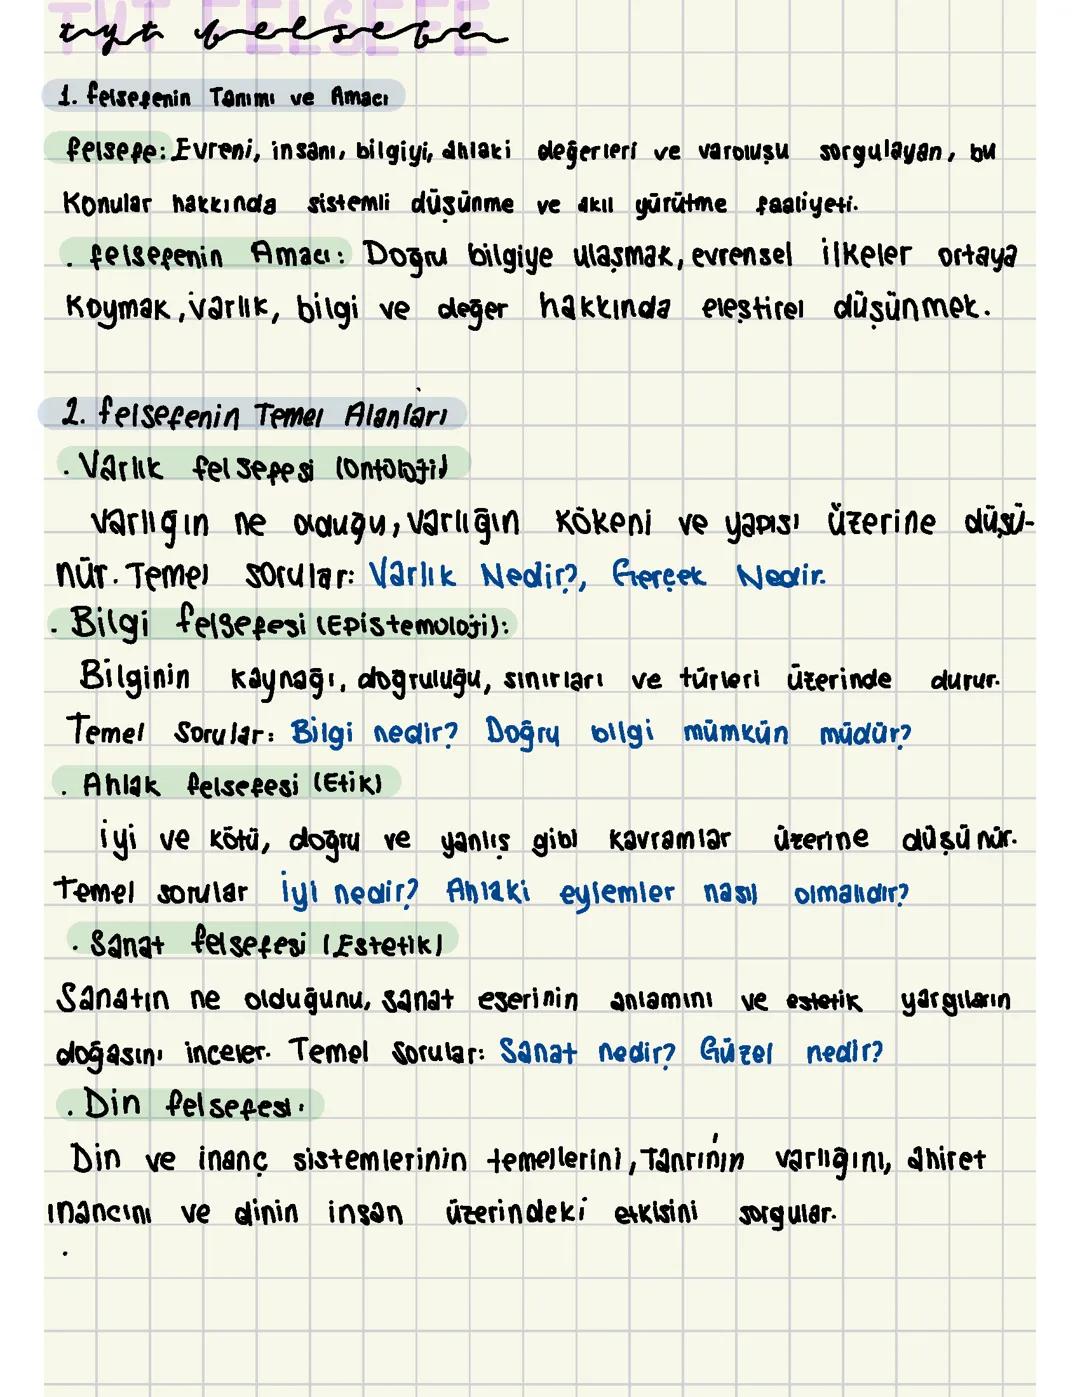 TYT FELSEFE
tyt felsefe
1. felsefenin Tanımı ve Amacı
felsefe: Evreni, insanı, bilgiyi, ahlaki değerleri ve varoluşu sorgulayan, bu
Konular hakkında sistemli düşünme ve akıl yürütme faaliyeti.
. felsefenin Amacı: Doğru bilgiye ulaşmak, evrensel ilkeler ortaya
Koymak, varlık, bilgi ve değer hakkında eleştirel düşünmek.
2. felsefenin Temel Alanları
. Varlık felsefesi (Ontoloji)
Varlığın ne olduğu, varlığın kökeni ve yapısı üzerine düşü-
nür. Temel sorular: Varlık Nedir?, Gerçek Nedir.
. Bilgi felsefesi (Epistemoloji):
Bilginin kaynağı, doğruluğu, sınırları ve türleri üzerinde durur.
Temel Sorular: Bilgi nedir? Doğru bilgi mümkün müdür?
. Ahlak felsefesi (Etik)
iyi ve kötü, doğru ve yanlış gibi kavramlar üzerine düşünür.
Temel sorular İyi nedir? Ahlaki eylemler nasıl olmalıdır?
. Sanat felsefesi (Estetik)
Sanatın ne olduğunu, sanat eserinin anlamını ve estetik yargıların
doğasını inceler. Temel Sorular: Sanat nedir? Güzel nedir?
. Din felsefesi.
Din ve inanç sistemlerinin temellerini, Tanrı'nın varlığını, ahiret
ınancını ve dinin insan üzerindeki etkisini sorgular.
.